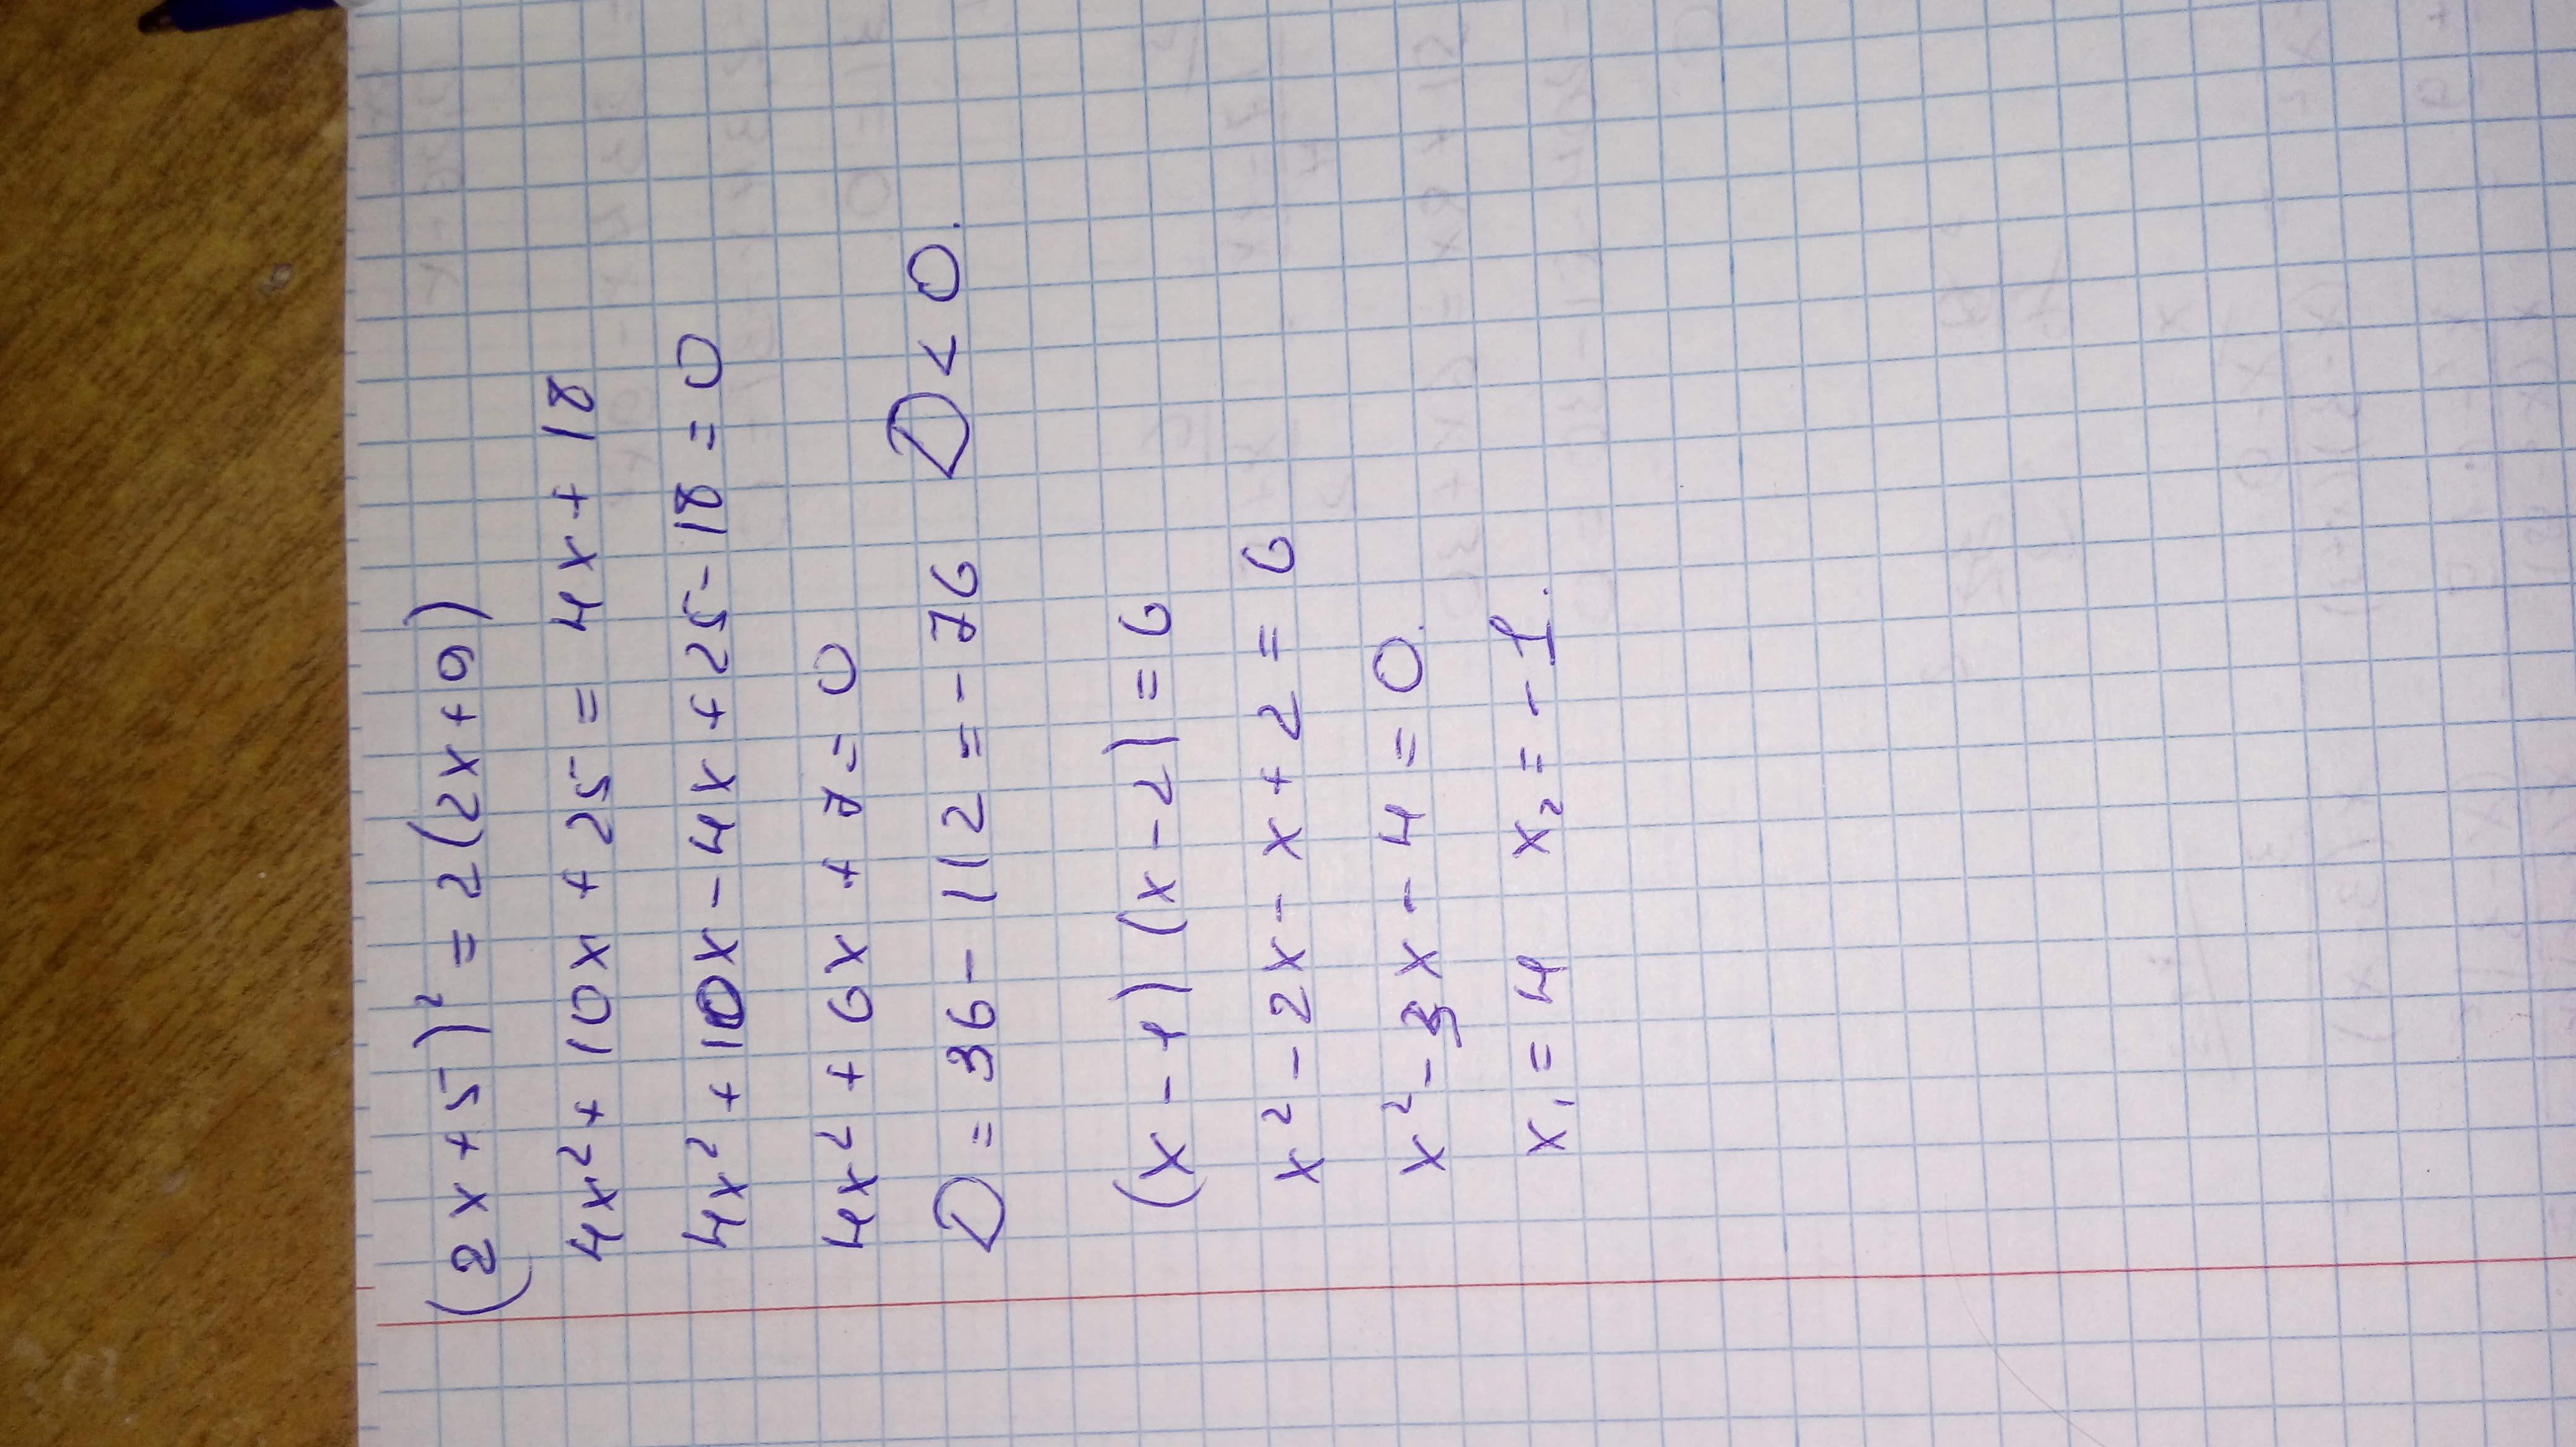 (2x+5)² = 2(2x+9)
4x² + 10x + 25 = 4x + 18
4x² + 10x - 4x + 25 - 18 = 0
4x² + 6x + 7 = 0
D = 36 - 112 = - 76 D < 0.
(x - 1) (x - 2) = 6
x² - 2x - x + 2 = 6
x² - 3x - 4 = 0.
x₁ = 4 x₂ = - 1.